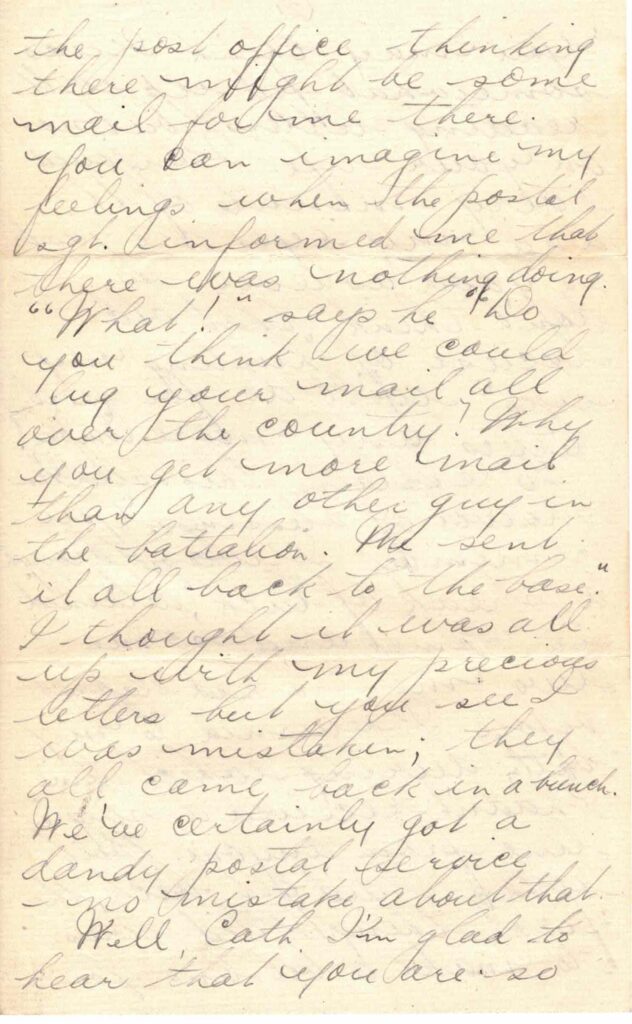 the post office thinking
there might be some
mail for me there.
You can imagine my
feelings when the postal
sgt. informed me that
there was nothing doing.
"What!" says he "Do
you think we could
lug your mail all
over the country! Why
you get more mail
than any other guy in
the battalion. We sent
it all back to the base."
I thought it was all
up with my precious
letters but you see I
was mistaken; they
all came back in a bunch.
We've certainly got a
dandy postal service
- no mistake about that.
Well, Cath, I'm glad to
hear that you are so